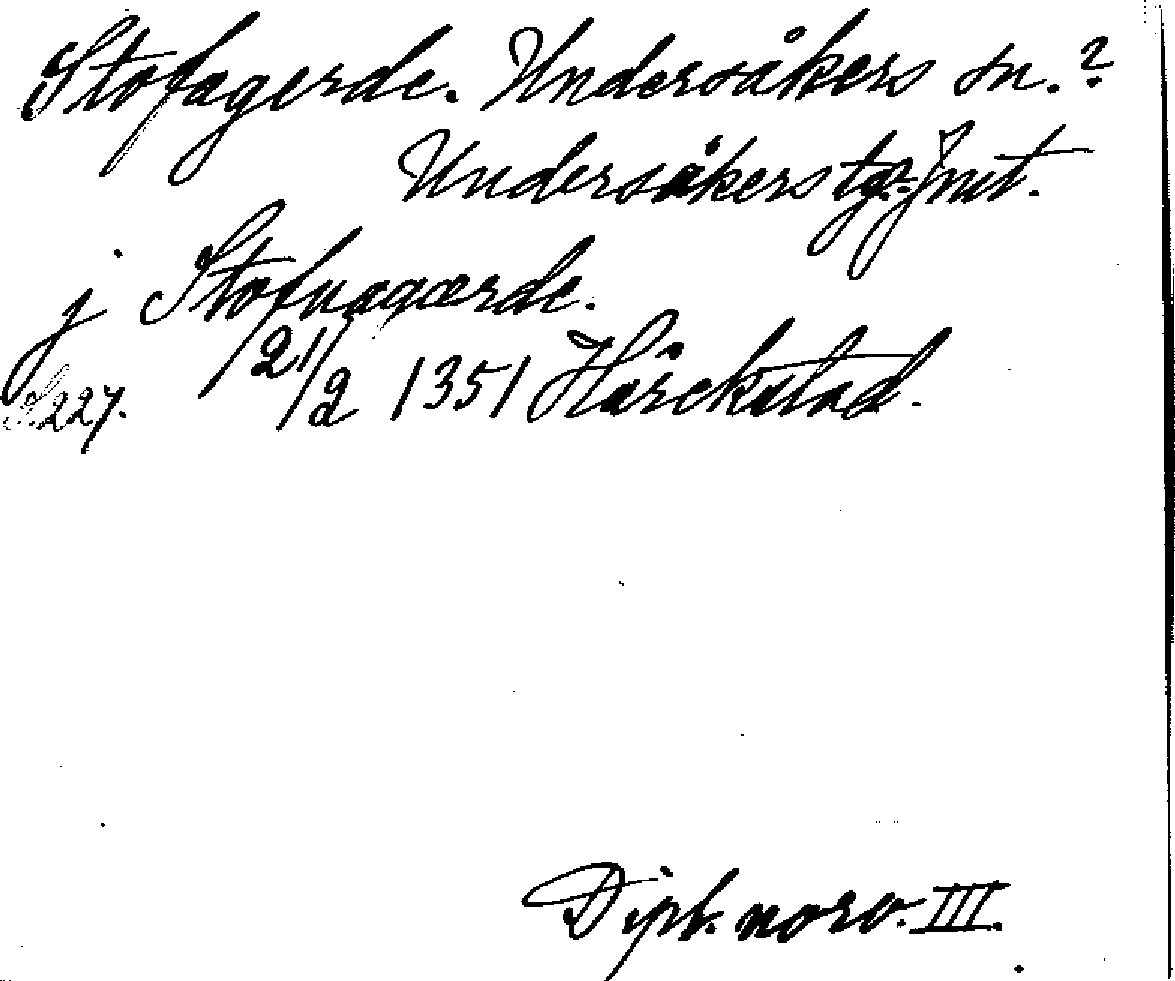 Stofagerde. Undersåkers sn.?
Undersåkers tg. Jmt.
j Stofnagærde.
S. 227. 21/2 1351 Hårckstad.
Dipl. norv. III.